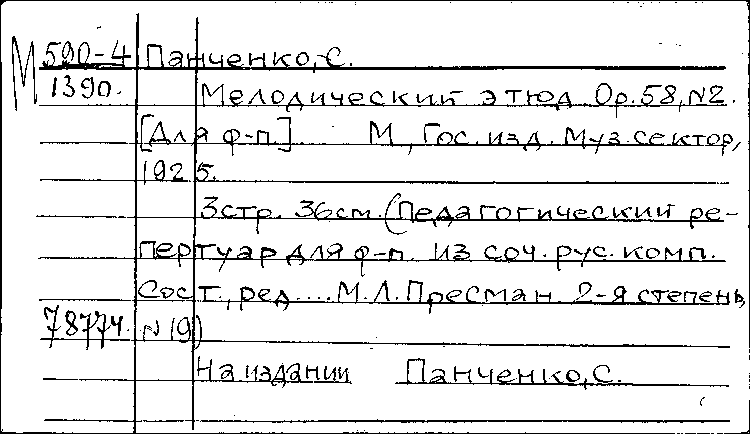 М 590-4 Панченко, С.
1390. Мелодический этюд Op.58, N2.
[Для ф-п.] М., Гос. изд. Муз. сектор,
1925.
3стр. 36см. (Педагогический ре-
пертуар для ф-п. из соч. рус. комп.
Сост., ред.... М.Л. Пресман. 2-я степень,
78774. N19)
На издании Панченко, С.